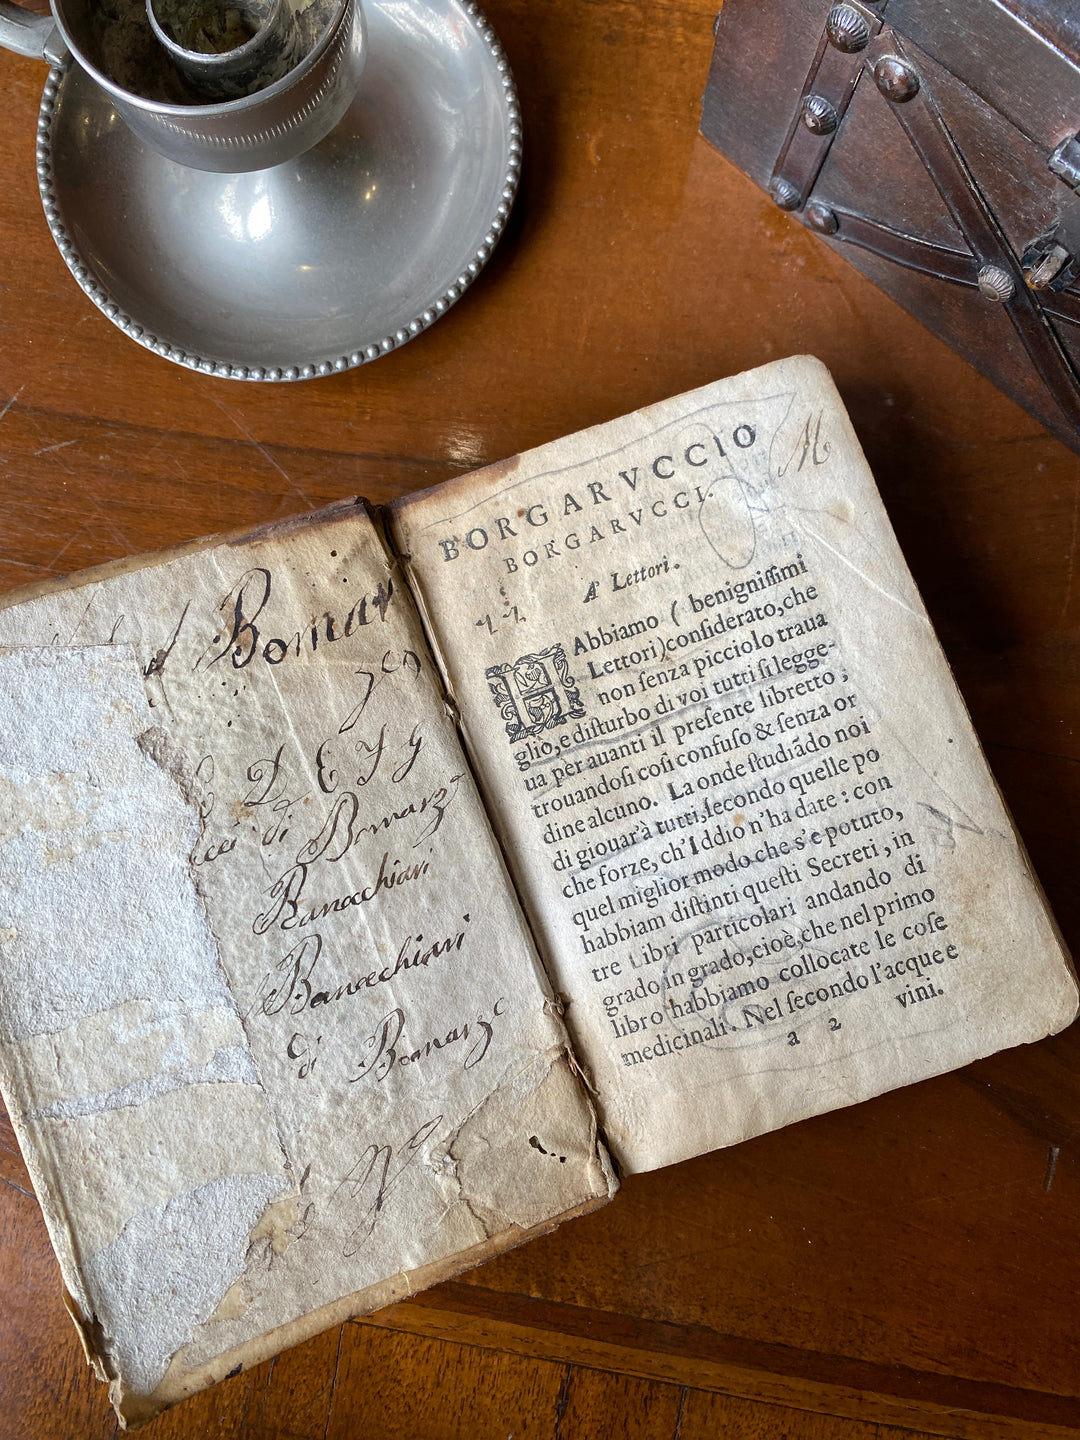 Bomar
D E F G
di Bomarz
Ranacchiari
Banacchiari
di Bomarzo
BORGARVCCIO
BORGARVCCI.
A' Lettori.
M
HAbbiamo ( benignissimi
Lettori)considerato,che
non senza picciolo traua
glio,e disturbo di voi tutti si legge-
ua per auanti il presente libretto ;
trouandosi cosi confuso & senza or
dine alcuno. La onde studiãdo noi
di giouar'à tutti,secondo quelle po
che forze, ch'Iddio n'ha date : con
quel miglior modo che s'e potuto,
habbiam distinti questi Secreti , in
tre Libri particolari andando di
grado in grado,cioè,che nel primo
libro habbiamo collocate le cose
medicinali. Nel secondo l'acque e
a 2 vini.